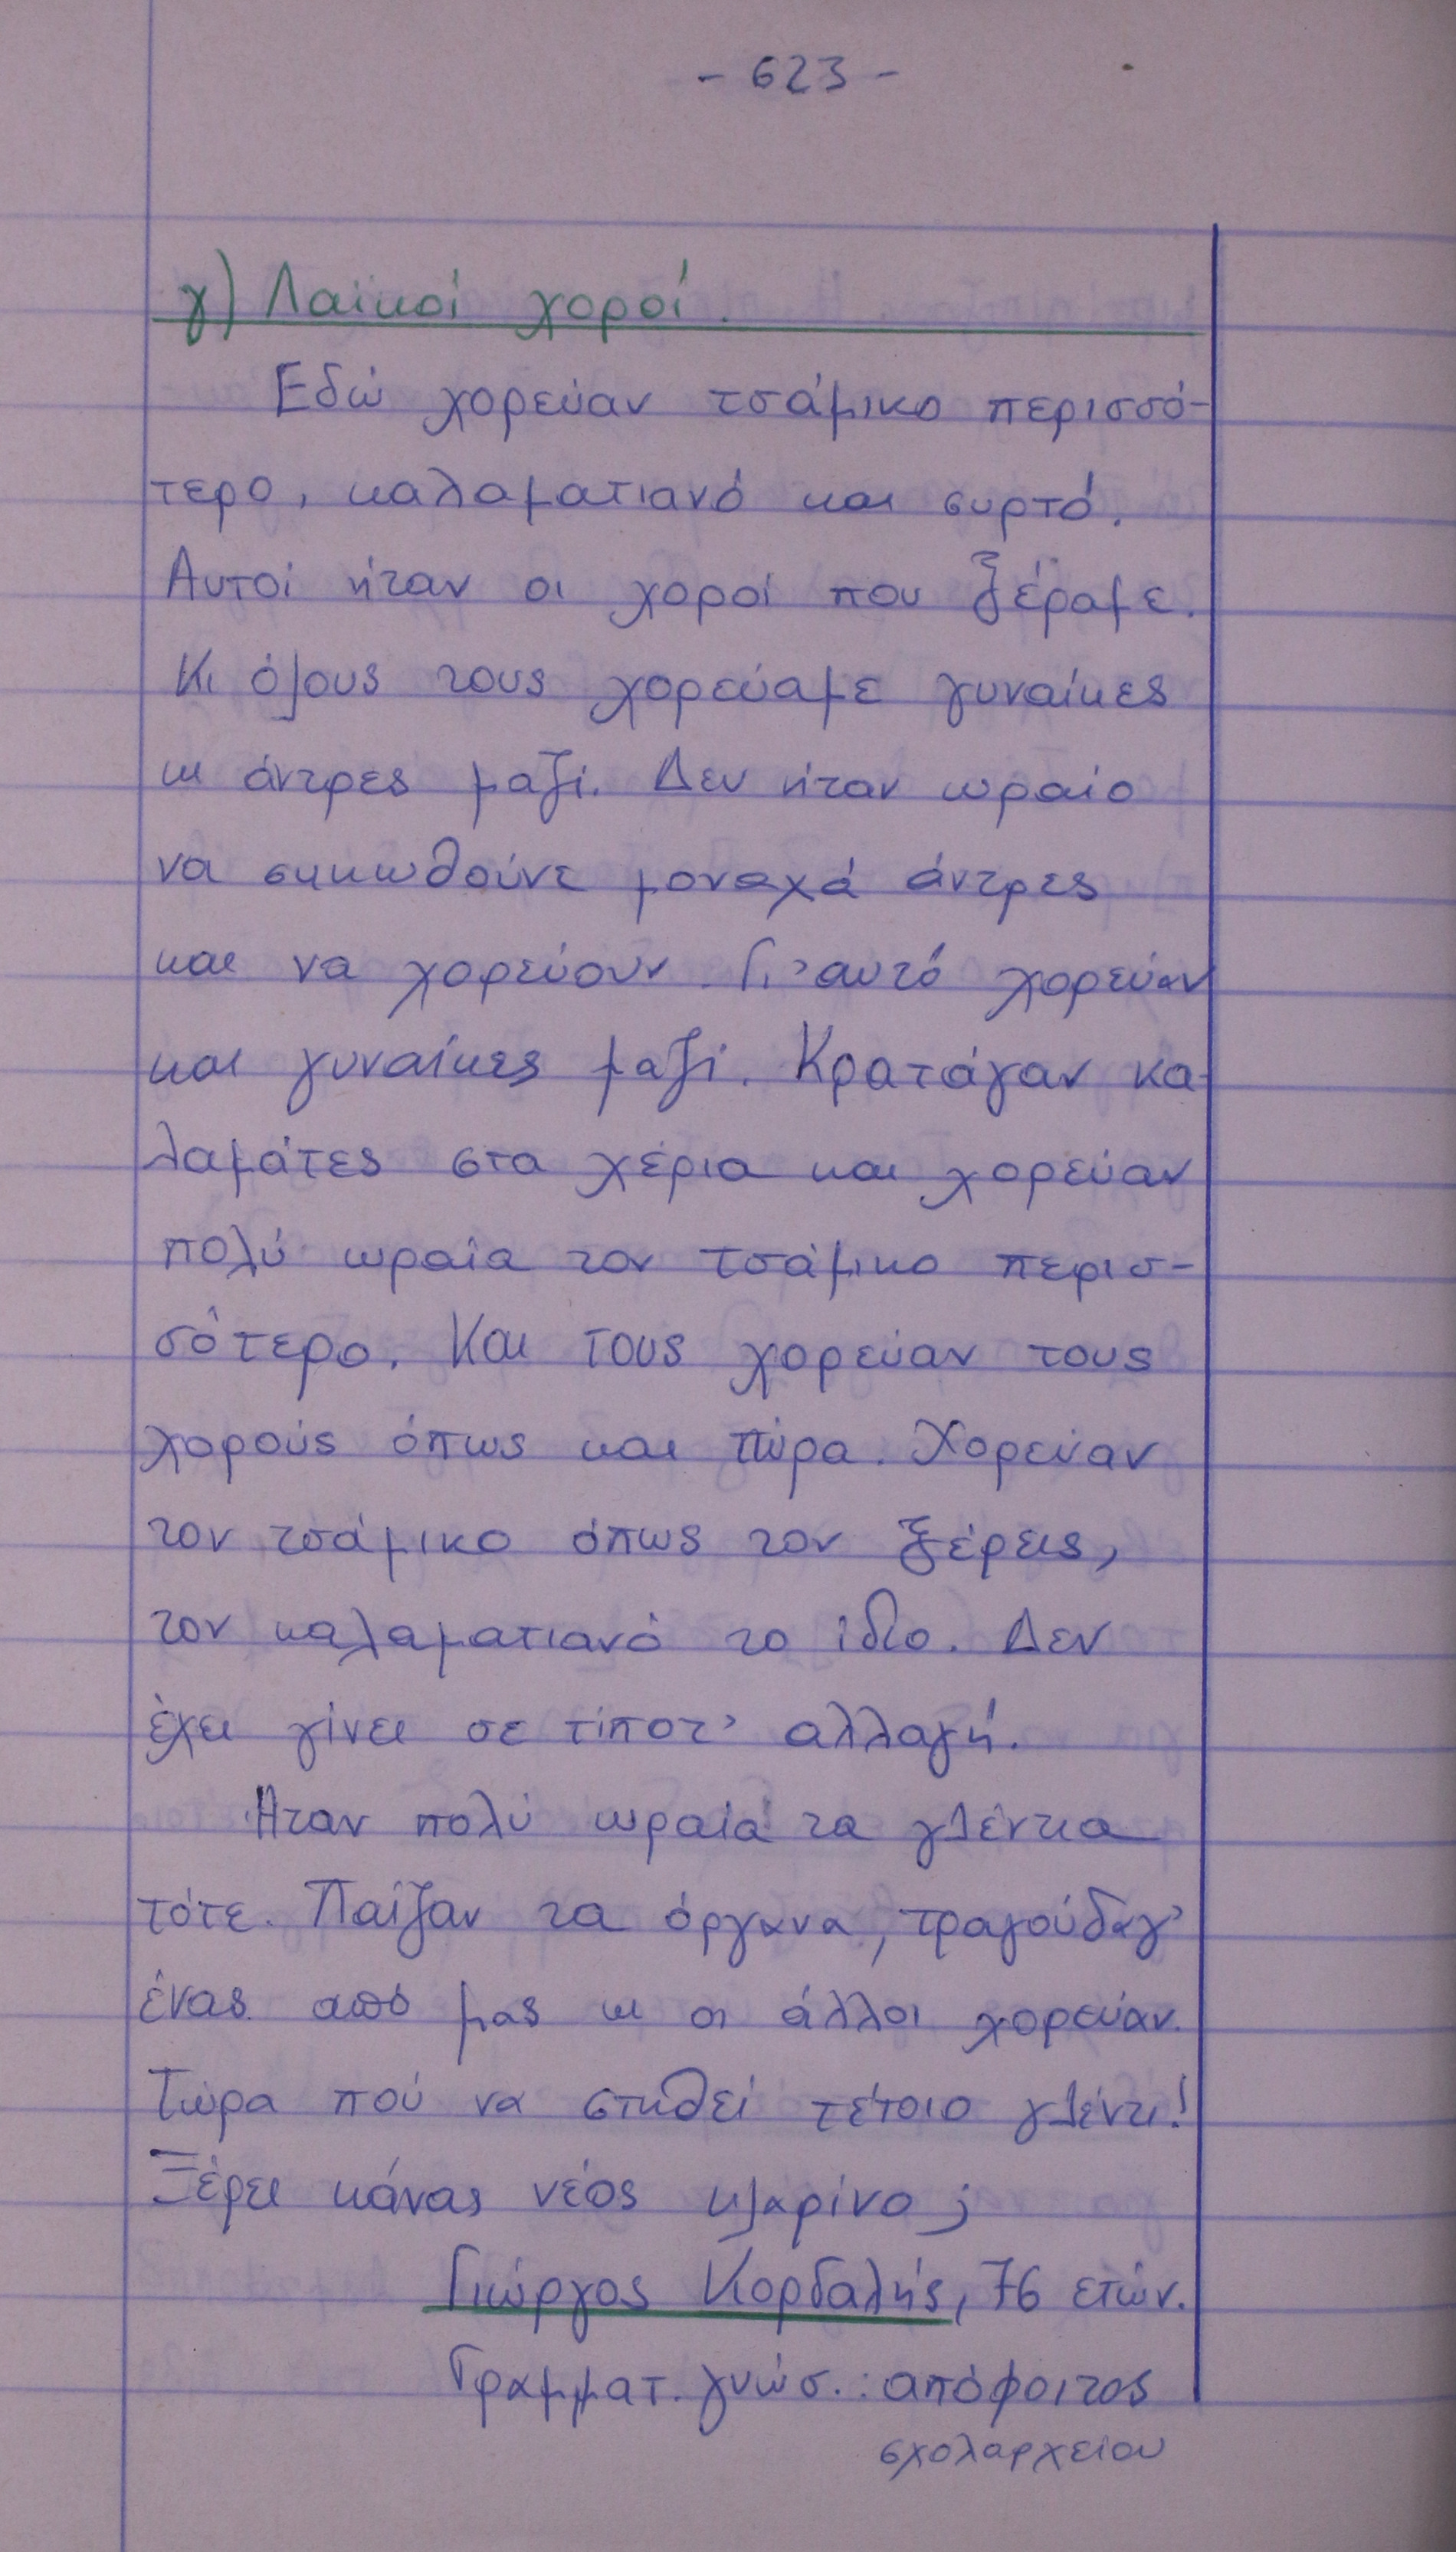 - 623 -
γ) Λαϊκοί χοροί.
Εδώ χορεύαν τσάμικο περισσό-
τερο, καλαματιανό και συρτό.
Αυτοί ήταν οι χοροί που ξέραμε.
Κι όλους τους χορεύαμε γυναίκες
κι άντρες μαζί. Δεν ήταν ωραίο
να σηκωθούνε μοναχά άντρες
και να χορεύουν. Γι' αυτό χορεύαν
και γυναίκες μαζί. Κρατάγαν κα-
λαμάτες στα χέρια και χορεύαν
πολύ ωραία τον τσάμικο περισ-
σότερο. Και τους χορεύαν τους
χορούς όπως και τώρα. Χορεύαν
τον τσάμικο όπως τον ξέρεις,
τον καλαματιανό το ίδιο. Δεν
έχει γίνει σε τίποτ' αλλαγή.
Ήταν πολύ ωραία τα γλέντια
τότε. Παίζαν τα όργανα, τραγούδαγ'
ένας από μας κι οι άλλοι χορεύαν.
Τώρα πού να στηθεί τέτοιο γλέντι!
Ξέρει κάνας νέος κλαρίνο;
Γιώργος Κορδαλής, 76 ετών.
Γραμματ. γνώσ.: απόφοιτος
σχολαρχείου